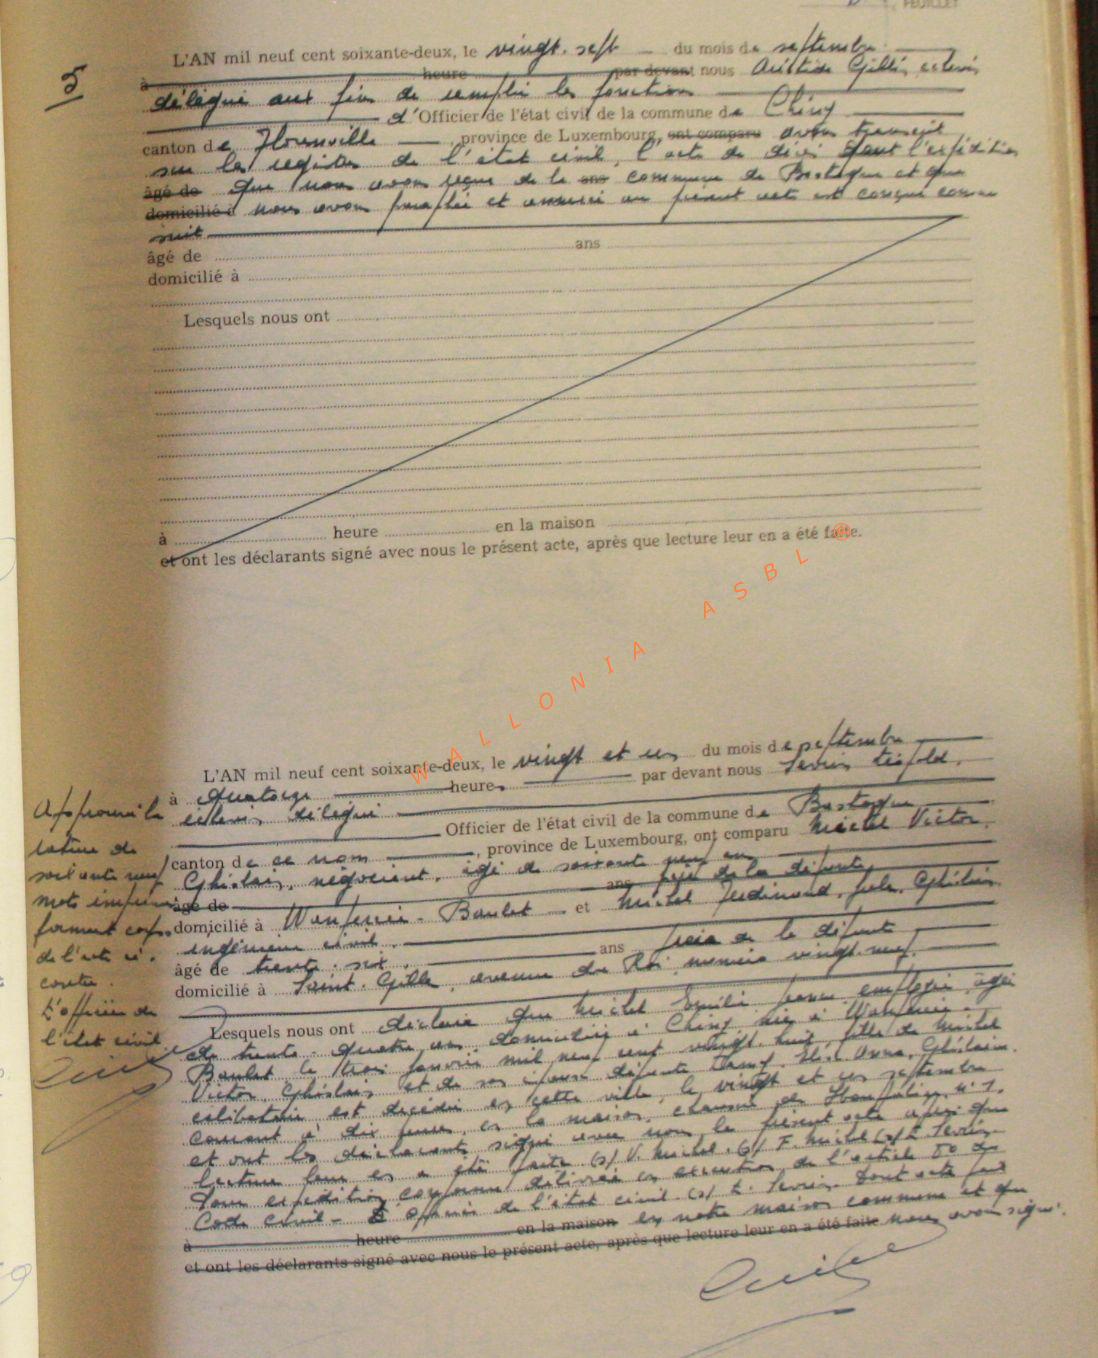 FEUILLET
5
L'AN mil neuf cent soixante-deux, le vingt-sept du mois de septembre
à heure par devant nous Aristide Gillis, échevin
délégué aux fins de remplir les fonctions
d'Officier de l'état civil de la commune de Chiny
canton de Florenville, province de Luxembourg, ont comparu avons transcrit
sur les registres de l'état civil, l'acte de décès dont l'expédition
âgé de que nous avons reçue de la ans commune de Bastogne et que
domicilié à nous avons paraphée et annexée au présent acte est conçue comme
suit
âgé de ans
domicilié à
Lesquels nous ont
à heure en la maison
et ont les déclarants signé avec nous le présent acte, après que lecture leur en a été faite.
WALLONIA ASBL ©
L'AN mil neuf cent soixante-deux, le vingt et un du mois de septembre
à quatorze heures par devant nous Sevrin Léopold,
échevin délégué
Officier de l'état civil de la commune de Bastogne
canton de ce nom, province de Luxembourg, ont comparu Michel Victor
Ghislain, négociant, âgé de soixante neuf ans
âgé de ans père de la défunte
domicilié à Wanfercée-Baulet et Michel Ferdinand, Jules, Ghislain
ingénieur civil
âgé de trente-six ans frère de la défunte
domicilié à Saint-Gilles, avenue du Roi, numéro vingt-neuf
Lesquels nous ont déclaré que Michel Emilie, employée, âgée
de trente-quatre ans domiciliée à Chiny née à Wanfercée-
Baulet le trois janvier mil neuf cent vingt-huit, fille de Michel
Victor Ghislain et de son épouse défunte Anna, Ghislaine
célibataire est décédée en cette ville, le vingt et un septembre
courant à dix heures, en la maison, chaussée de Houffalize, n° 1.
et ont les déclarants signé avec nous le présent acte après que
lecture leur en a été faite (s) V. Michel. (s) F. Michel (s) L. Sevrin.
Pour expédition conforme délivrée en exécution de l'article 80 du
Code civil - L'officier de l'état civil (s) L. Sevrin. Dont acte fait
à heure en la maison en notre maison commune et que
et ont les déclarants signé avec nous le présent acte, après que lecture leur en a été faite nous avons signé.
Approuvé la
rature de
soixante neuf
mots imprimés
formant corps
de l'acte ci-
contre.
L'officier de
l'état civil